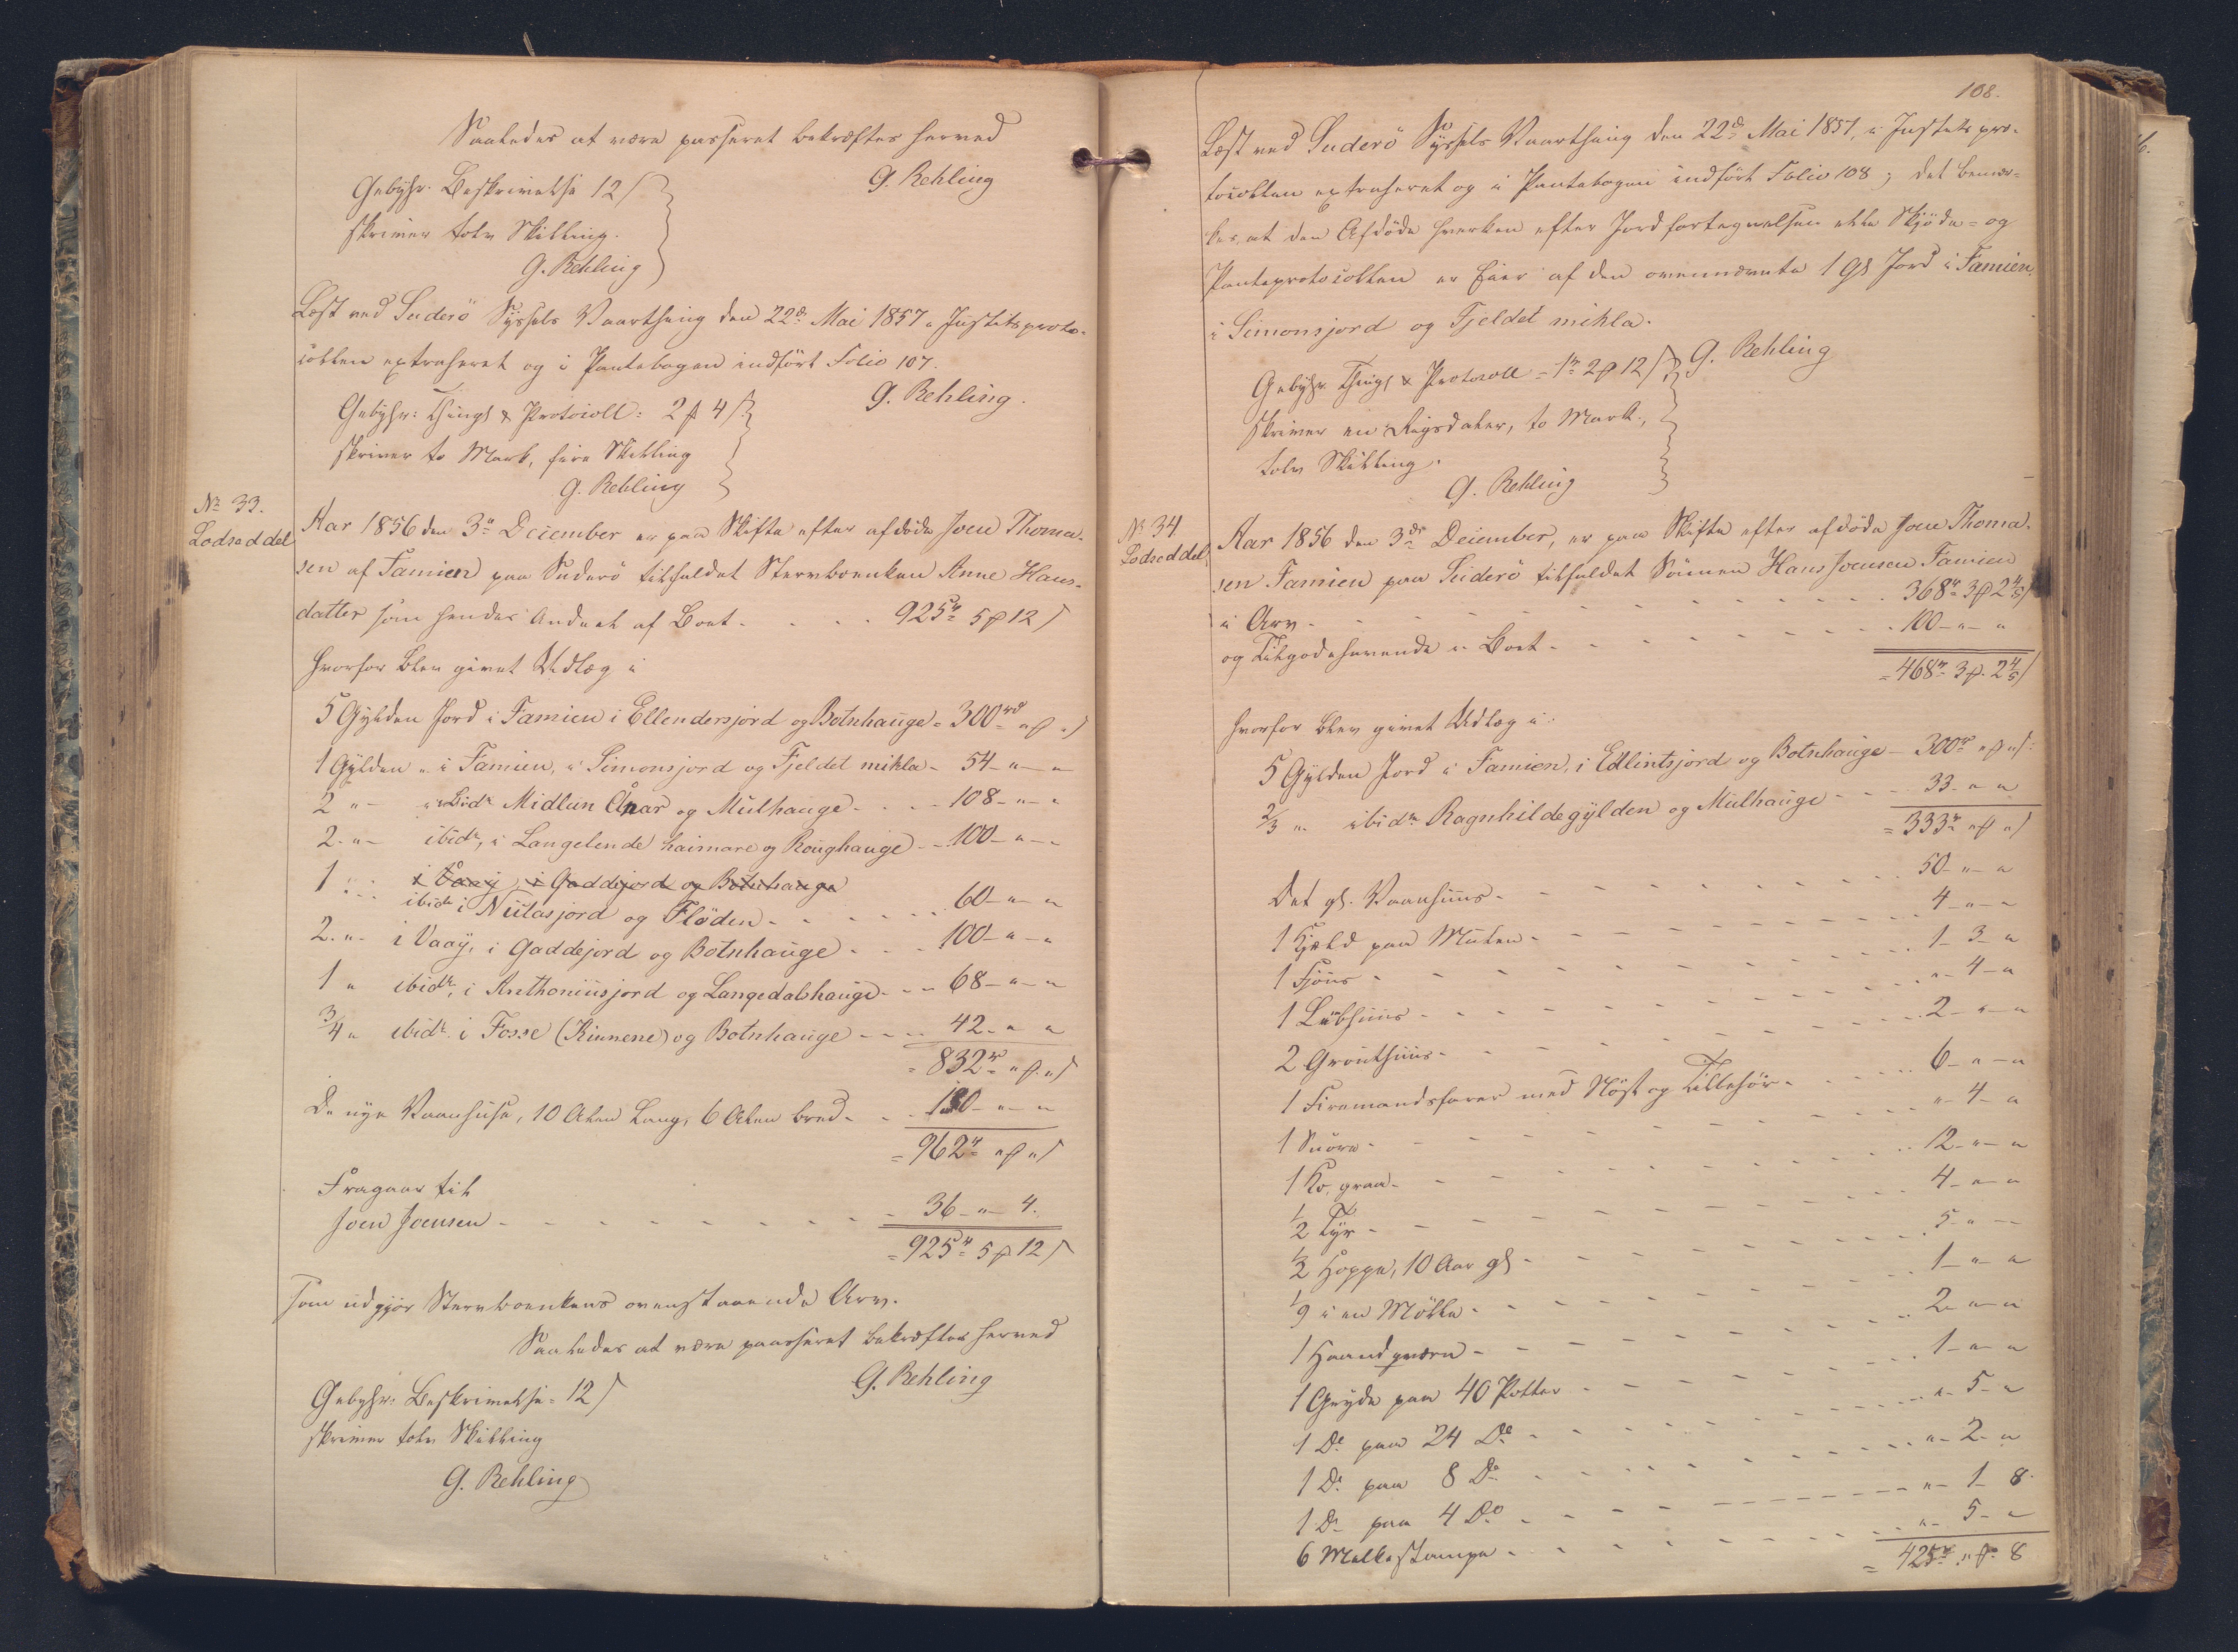 Saaledes at være passeret bekræftes herved
G. Rehling
Gebyhr. Beskrivelse 12 ß
skriver tolv Skilling.
G. Rehling
Læst ved Suderö Syssels Vaarthing den 22de Mai 1857 i Justitsproto-
collen extraheret og i Pantebogen indfört Folio 107.
G. Rehling.
Gebyhr: Things & Protocoll: 2 ℳ 4 ß
skriver to Mark, fire Skilling
G. Rehling
No 33.
Lodseddel
Aar 1856 den 3die December er paa Skifte efter afdöde Joen Thoma-
sen af Famien paa Suderö tilfaldet Stervboenken Anne Hans-
datter som hendes Andeel af Boet - 925rd 5 ℳ 12 ß
hvorfor blev givet Udlæg i
5 Gylden Jord i Famien i Ellendersjord og Botnhauge - 300rd „ ℳ „ ß
1 Gylden „ i Famien, i Simonsjord og Fjeldet mikla - 54 - „ - „
2 „ - ibidm Midlun Ånar og Mulhauge - 108 - „ - „
2 - „ - ibidm, i Langelende haimare og Roughauge - 100 - „ - „
1 „ i Vaag, i Gaddejord og Botnhauge
ibidm i Niitasjord og Flöden - 60 - „ - „
2 - „ - i Vaag, i Gaddejord og Botnhauge - 100 - „ - „
1 „ ibidm, i Anthoniusjord og Langedalshauge - 68 - „ - „
3/4 „ ibidm i Fosse (Kinnene) og Botnhauge - 42 - „ „
= 832rd „ ℳ „ ß
De nye Vaanhuse, 10 Alen lang, 6 Alen bred - 130 - „ - „
= 962rd „ ℳ „ ß
Fragaar til
Joen Joensen - 36 - „ - 4.
= 925rd 5 ℳ 12 ß
som udgjör Stervboenkens ovenstaaende Arv.
Saaledes at være passeret bekræftes herved
G. Rehling
Gebyhr: Beskrivelse = 12 ß
skriver tolv Skilling
G. Rehling
108.
Læst ved Suderö Syssels Vaarthing den 22de Mai 1857, i Justitspro-
tocollen extraheret og i Pantebogen indfört Folio 108; det bemær-
kes, at den Afdöde hverken efter Jordfortegnelsen eller Skjöde- og
Panteprotocollen er Eier af den ovennævnte 1 Gl Jord i Famien,
i Simonsjord og Fjeldet mikla.
G. Rehling
Gebyhr Things & Protocoll = 1rd 2 ℳ 12 ß
skriver en Rigsdaler, to Mark,
tolv Skilling.
G. Rehling
No 34
Lodseddel
Aar 1856 den 3die December, er paa Skifte efter afdöde Joen Thoma-
sen Famien paa Suderö tilfaldet Sönnen Hans Joensen Famien
i Arv - 368rd 3 ℳ 2 4/5 ß
og Tilgodehavende i Boet - 100 - „ - „
= 468rd 3 ℳ 2 4/5 ß
hvorfor blev givet Udlæg i:
5 Gylden Jord i Famien, i Edlintsjord og Botnhauge - 300rd „ ℳ „ ß
2/3 „ ibidm Ragnhildegylden og Mulhauge - 33 - „ „
= 333rd „ ℳ „ ß
Det gl. Vaanhuus - 50 - „ - „
1 Kjeld paa Mulen - 4 - „ - „
1 Fjöus - 1 - 3 - „
1 Læbhuus - „ - 4 - „
2 Grouthuus - 2 - „ - „
1 Firemandsfarer med Nöst og Tilbehör - 6 - „ - „
1 Snöre - „ - 4 - „
1 Ko, graa - 12 - „ - „
1/2 Tyr - 4 - „ - „
1/2 Hoppe, 10 Aar gl - 5 - „ - -
1/9 i en Mölle - 1 - „ - „
1 Haandqværn - 2 - „ - „
1 Gryde paa 40 Potter - 1 - „ - „
1 Do paa 24 Do - „ - 5 - „
1 Do paa 8 Do - „ - 2 - „
1 Do paa 4 Do - „ - 1 - 8
6 Melkestampe - „ - 5 - „
= 425rd „ ℳ 8